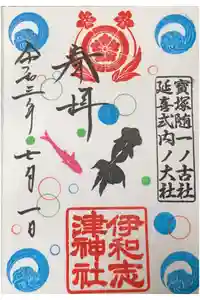 寶塚随一ノ古社
延喜式内ノ大社
奉拝
令和三年七月一日
伊和志
津神社